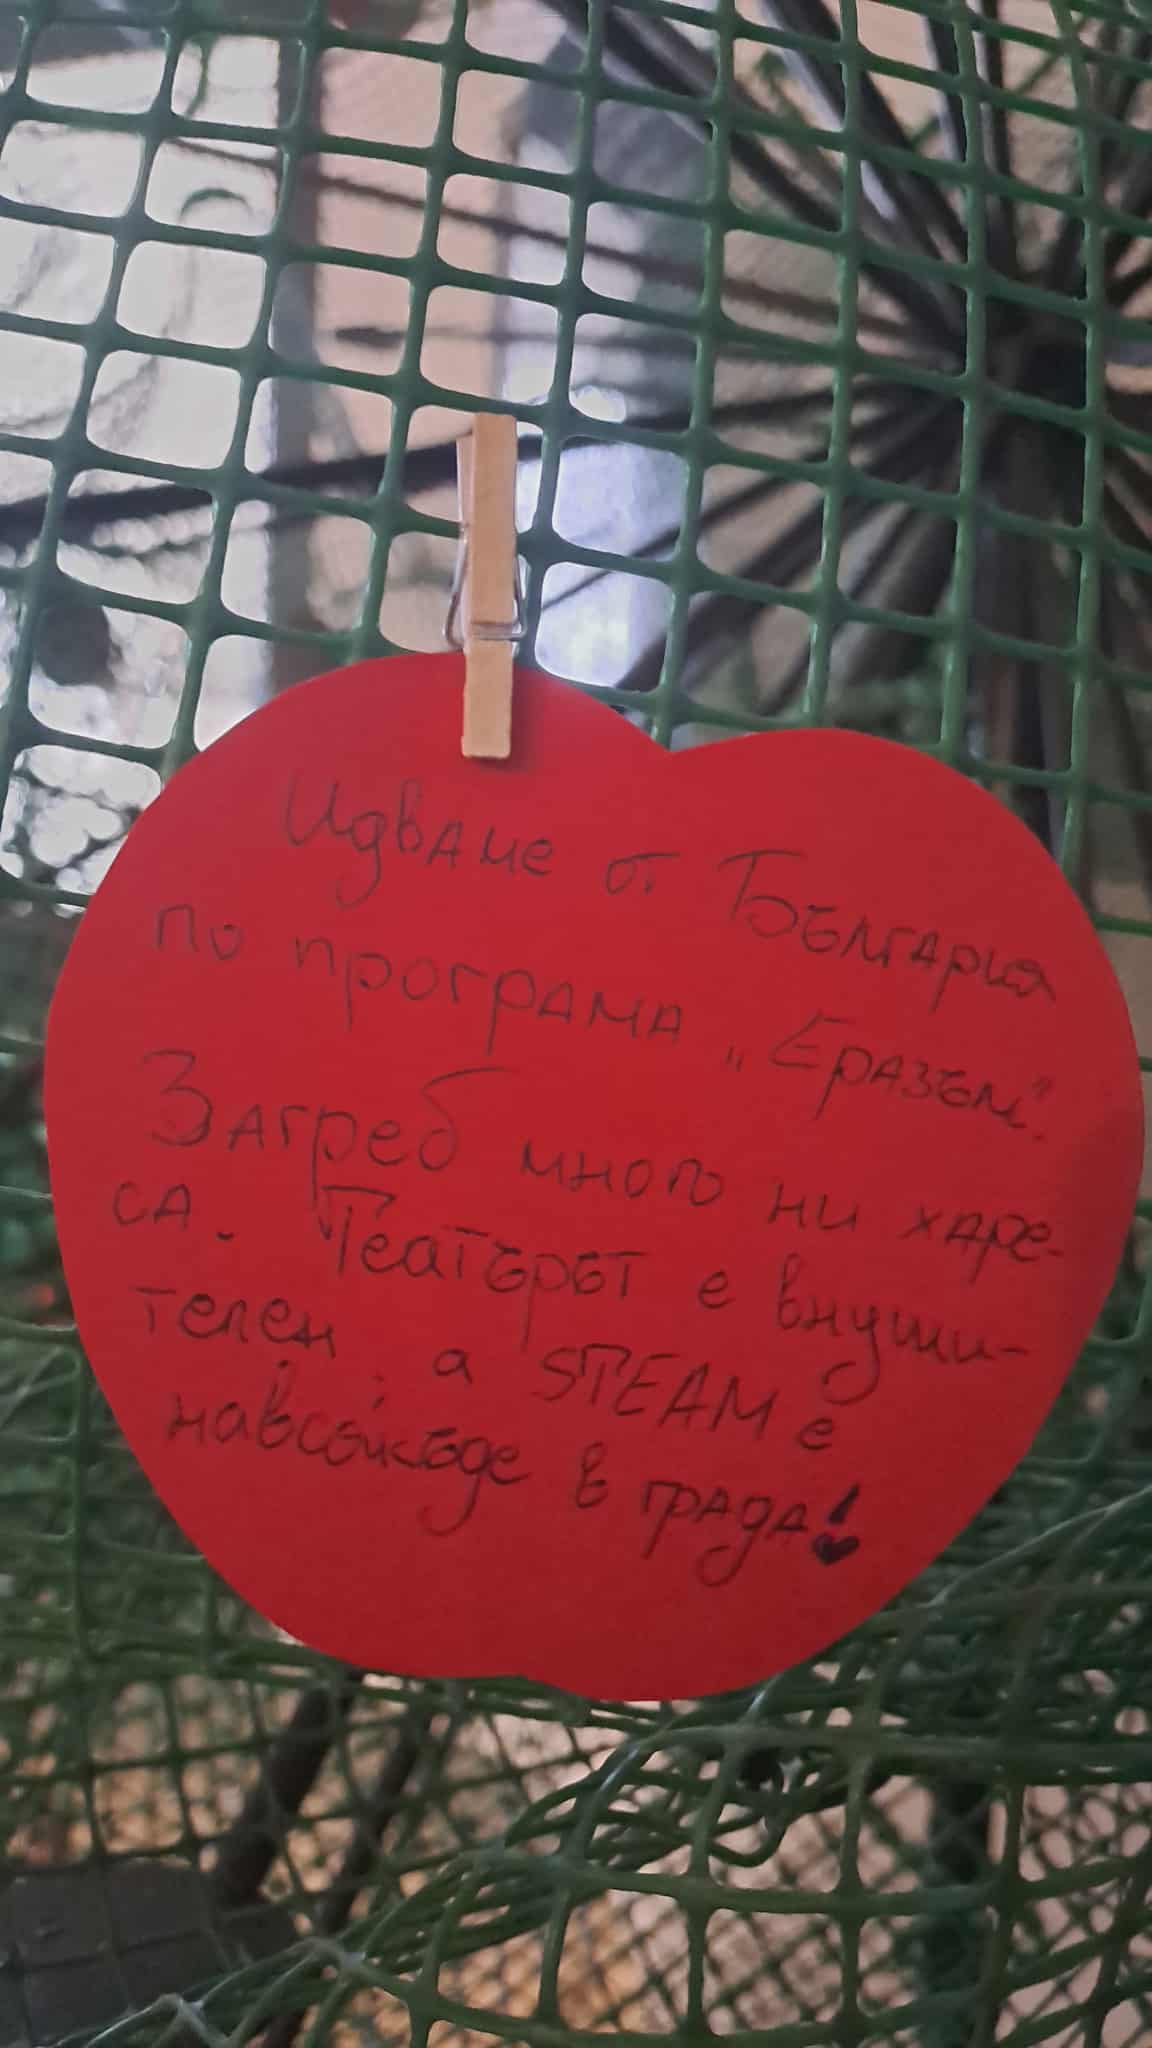 Идваме от България
по програма „Еразъм".
Загреб много ни харе-
са. Театърът е внуши-
телен, а STEAM е
навсякъде в града!